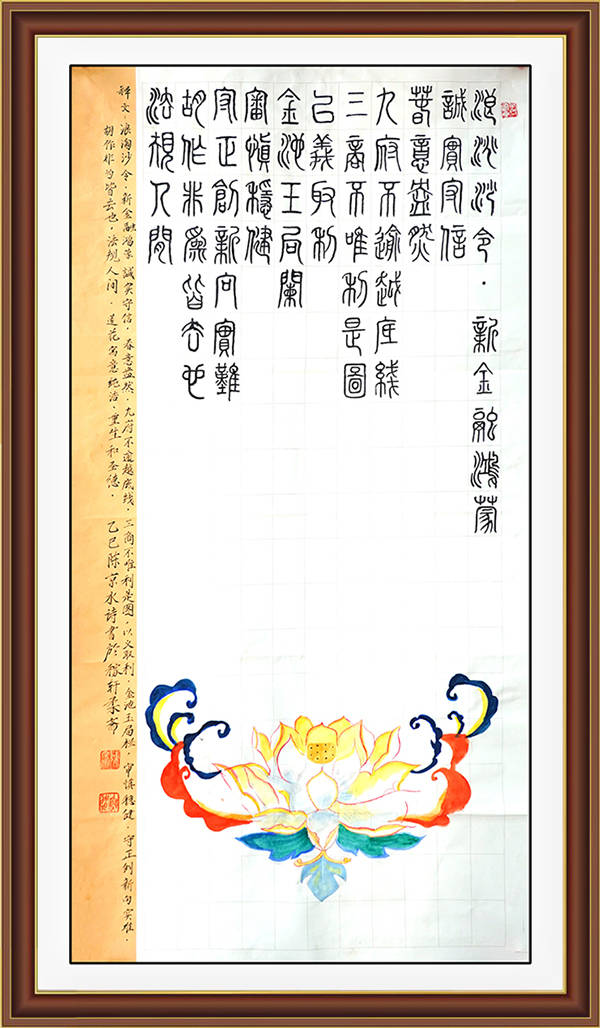 浪淘沙令·新金融鴻蒙
誠實守信
春意盎然
九府不逾越底綫
三商不唯利是圖
以義取利
金池玉局闌
審慎穩健
守正創新向實難
胡作非為皆去也
法規人間
释文·浪淘沙令·新金融鸿蒙 誠实守信·春意盎然·九府不逾越底线·三商不唯利是图·以义取利·金池玉局·审慎稳健·守正创新向实难·
胡作非为皆去也·法规人间·莲花寓意纯洁·重生和圣德·乙巳陈京水诗书於稼轩